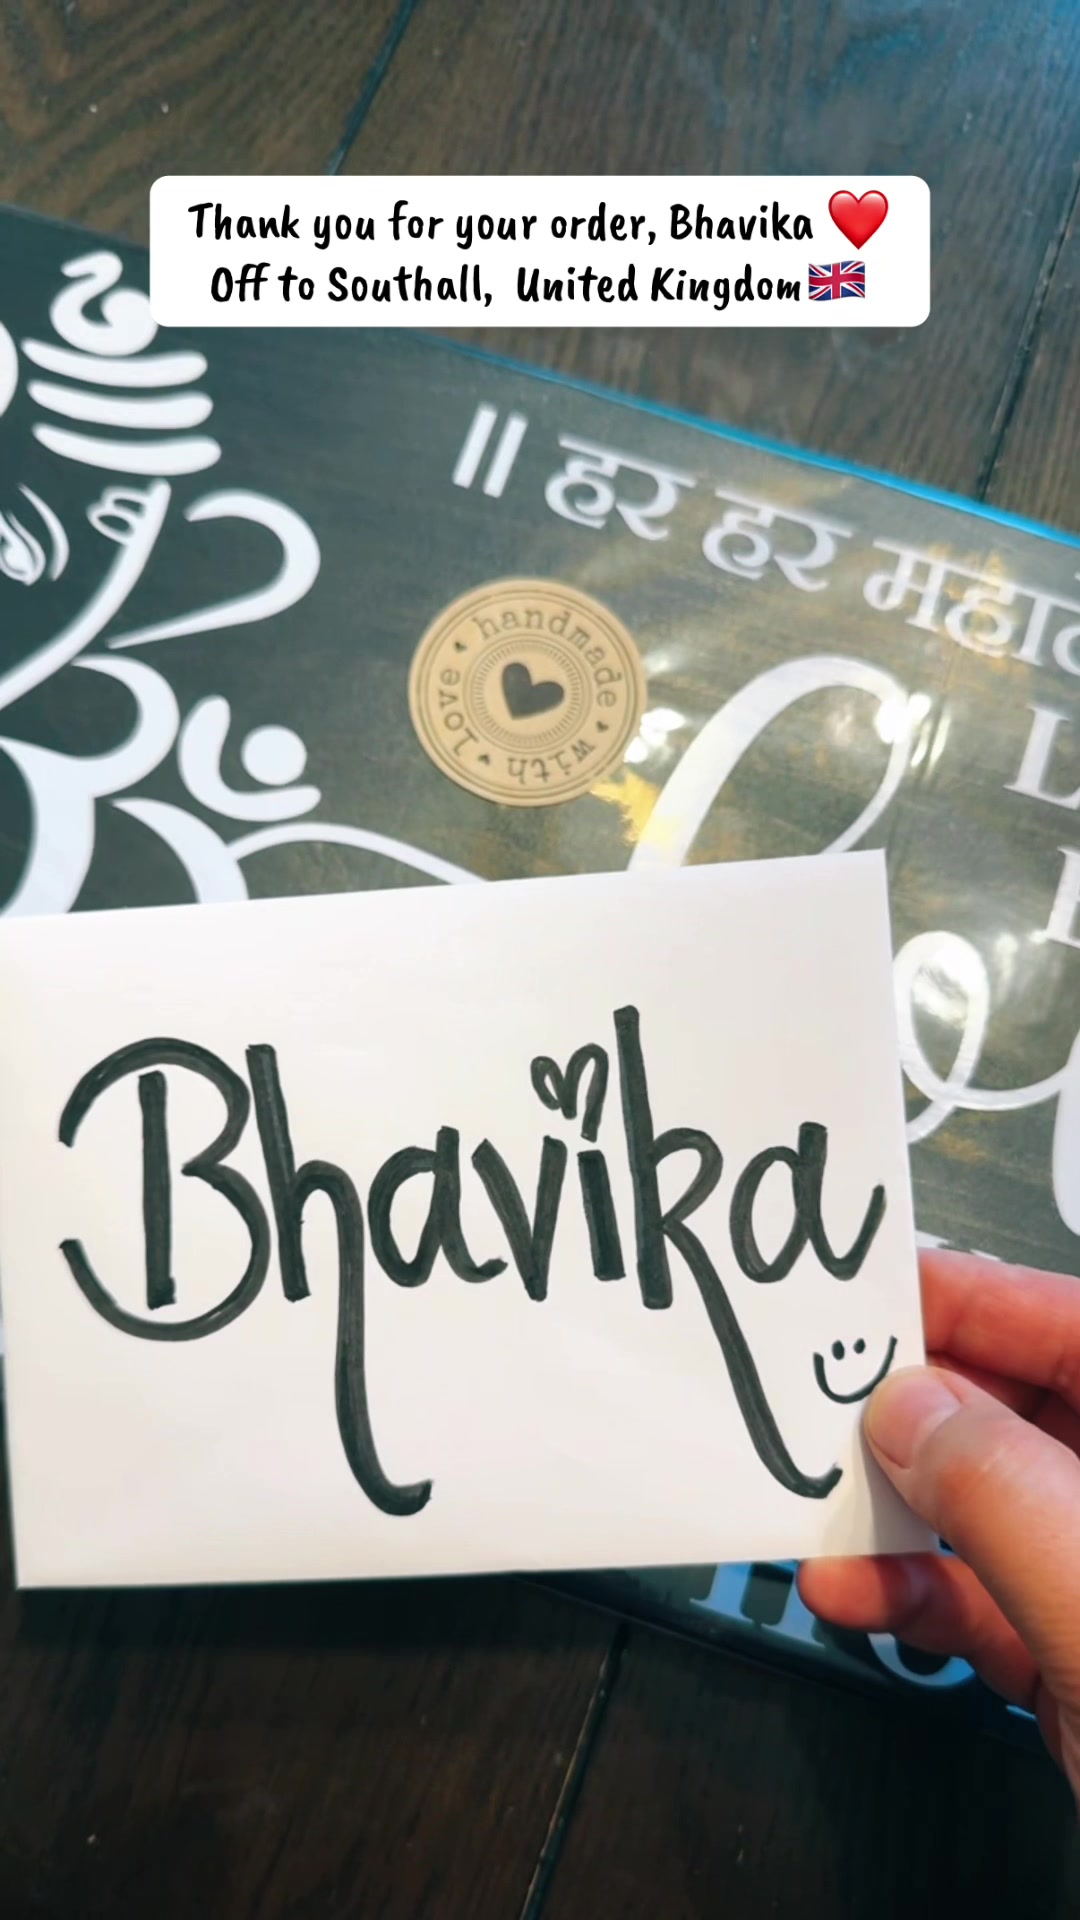 Thank you for your order, Bhavika ❤️
Off to Southall, United Kingdom🇬🇧
॥ हर हर
handmade with love
Bhavika